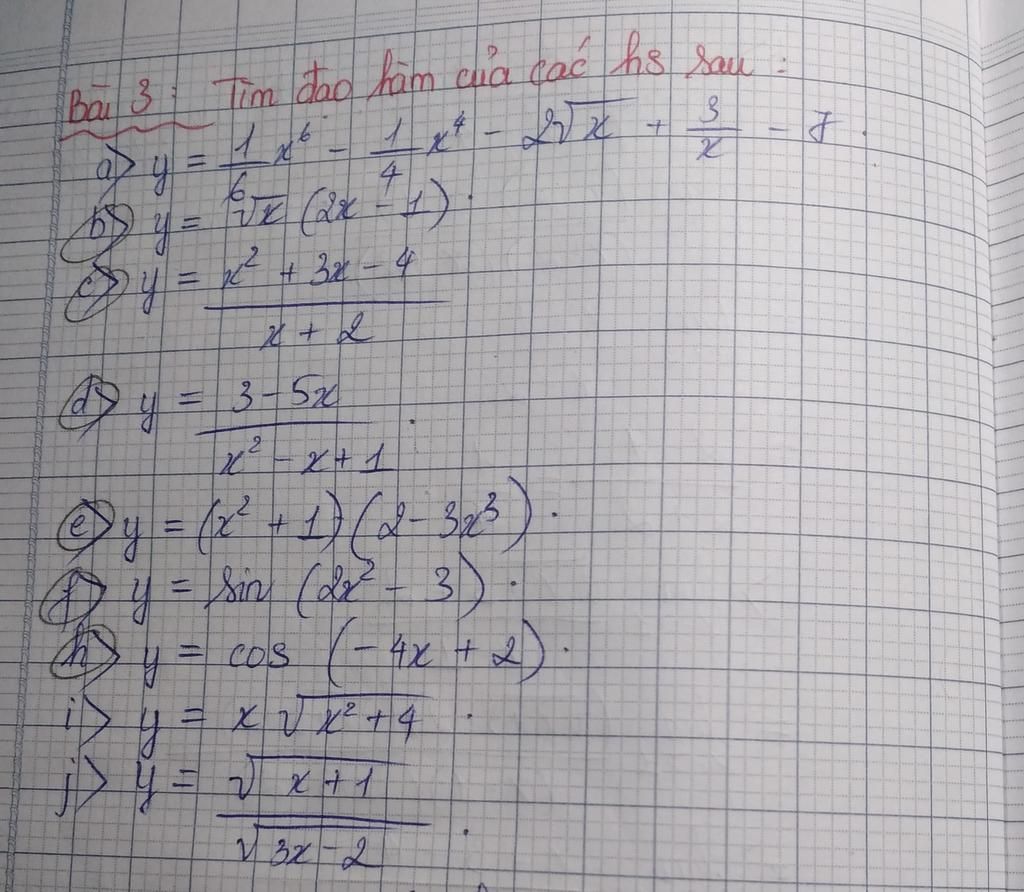 Bài 3: Tìm đạo hàm của các hs sau:
a> y = 1/6 x⁶ - 1/4 x⁴ - 2√x + 3/x - 7.
b> y = √x (2x - 1).
c> y = (x² + 3x - 4)/(x + 2)
d> y = (3 - 5x)/(x² - x + 1).
e> y = (x² + 1)(2 - 3x³).
f> y = sin (2x² - 3).
h> y = cos (-4x + 2).
i> y = x √(x² + 4).
j> y = √(x + 1)/√(3x - 2).